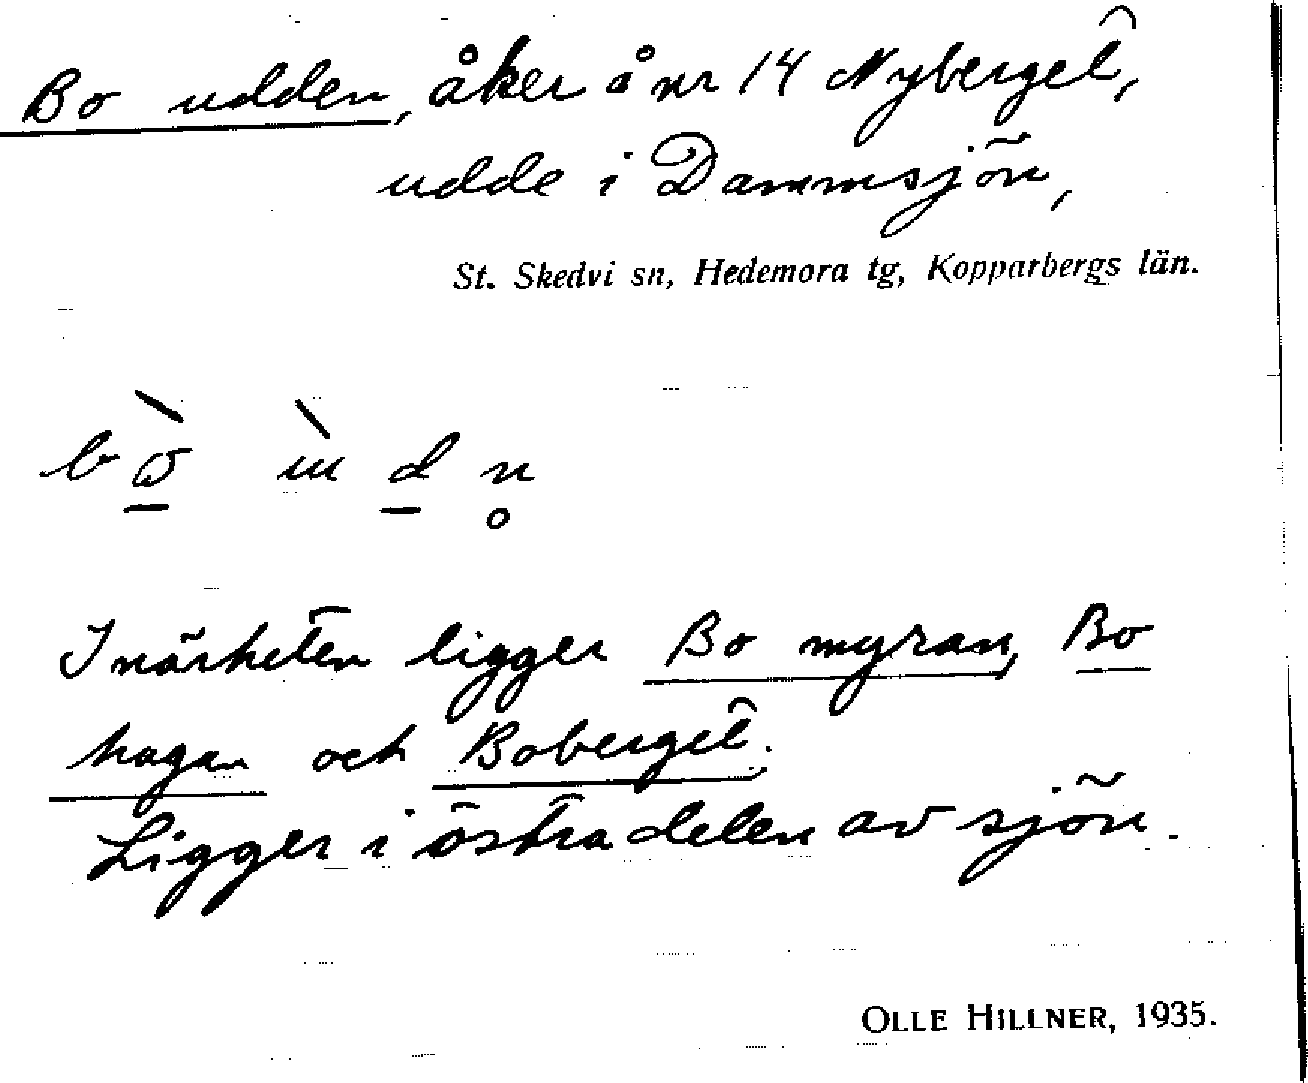 Bo udden, åker å nr 14 Nyberget,
udde i Dammsjön,
St. Skedvi sn, Hedemora tg, Kopparbergs län.
I närheten ligger Bo myran, Bo
hagan och Boberget.
Ligger i östra delen av sjön.
OLLE HILLNER, 1935.